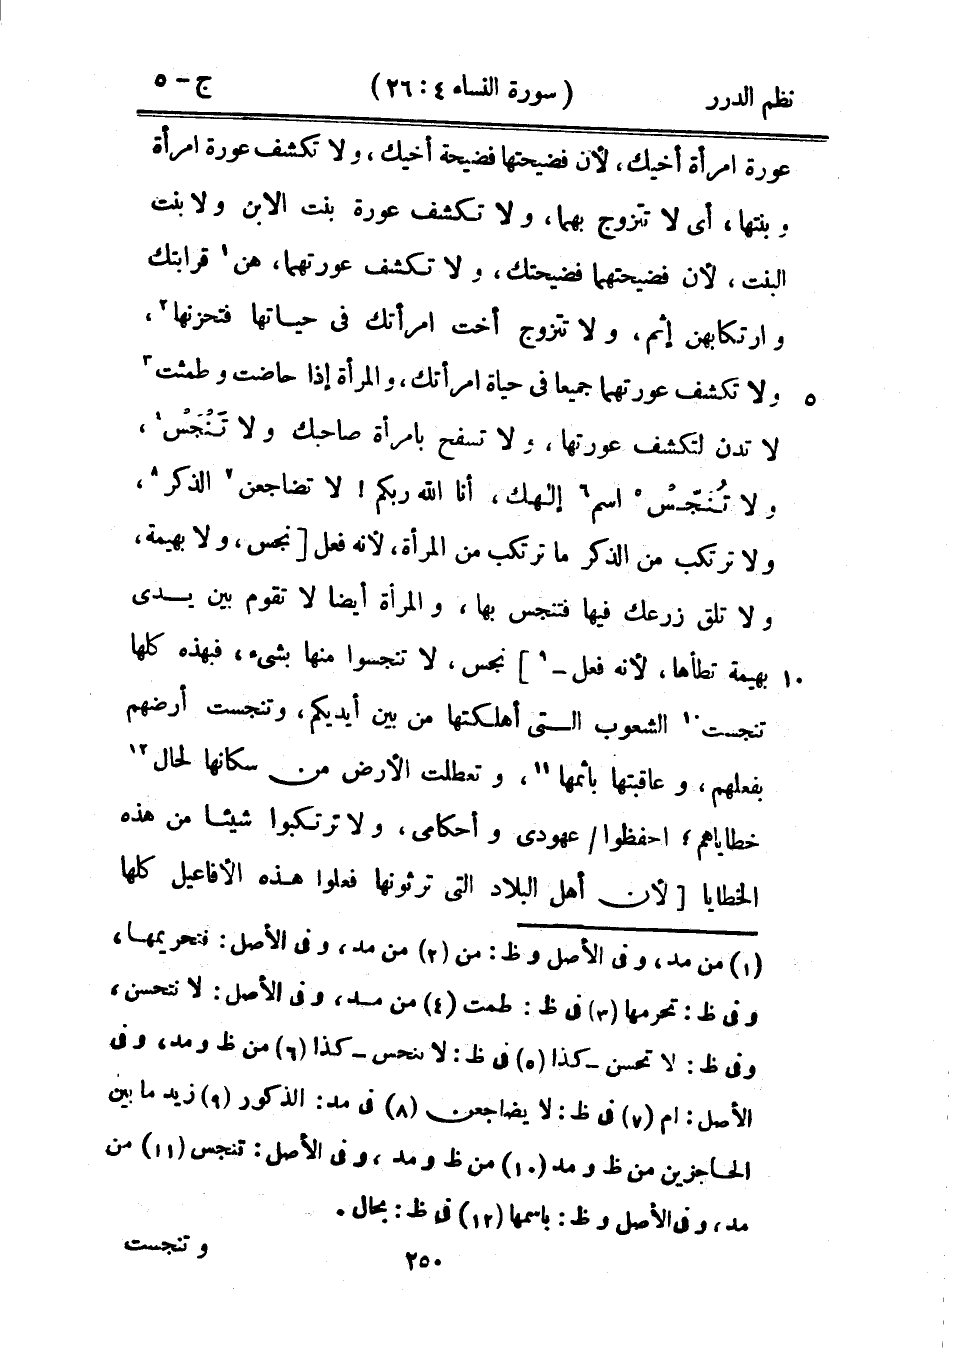 نظم الدرر ( سورة النساء ٤ : ٢٦ ) ج - ٥
عورة امرأة أخيك، لأن فضيحتها فضيحة أخيك، و لا تكشف عورة امرأة
و بنتها، أى لا تتزوج بهما، و لا تكشف عورة بنت الابن و لا بنت
البنت، لأن فضيحتهما فضيحتك، و لا تكشف عورتهما، هن١ قرابتك
و ارتكابهن إثم، و لا تتزوج أخت امرأتك فى حياتها فتحزنها٢،
٥ ولا تكشف عورتهما جميعا فى حياة امرأتك، و المرأة إذا حاضت و طمثت٣
لا تدن لتكشف عورتها، و لا تسفح بامرأة صاحبك و لا تَنْجَسْ٤،
و لا تُنَجّسْ٥ اسم٦ إلهك، أنا الله ربكم! لا تضاجعن٧ الذكر٨،
و لا ترتكب من الذكر ما ترتكب من المرأة، لأنه فعل [ نجس، و لا بهيمة،
و لا تلق زرعك فيها فتنجس بها، و المرأة أيضا لا تقوم بين يدى
١٠ بهيمة تطأها، لأنه فعل -٩ ] نجس، لا تنجسوا منها بشىء، فبهذه كلها
تنجست١٠ الشعوب التى أهلكتها من بين أيديكم، وتنجست أرضهم
بفعلهم، و عاقبتها بأثمها١١، و تعطلت الأرض من سكانها لحال١٢
خطاياهم؛ احفظوا/ عهودى و أحكامى، و لا ترتكبوا شيئا من هذه
الخطايا [ لأن أهل البلاد التى ترثونها فعلوا هذه الأفاعيل كلها
(١) من مد، و فى الأصل و ظ: من (٢) من مد، و فى الأصل: فتحريمها،
و فى ظ: تحرمها (٣) فى ظ: طمت (٤) من مد، و فى الأصل: لا تتحسن،
وفى ظ: لا تحسن - كذا (٥) فى ظ: لا ىنحس - كذا (٦) من ظ و مد، و فى
الأصل: ام (٧) فى ظ: لا يضاجعن (٨) فى مد: الذكور (٩) زيد ما بين
الحاجزين من ظ و مد (١٠) من ظ و مد، و فى الأصل: تنجس (١١) من
مد، و فى الأصل و ظ: باسمها (١٢) فى ظ: بحال.
و تنجست
٢٥٠